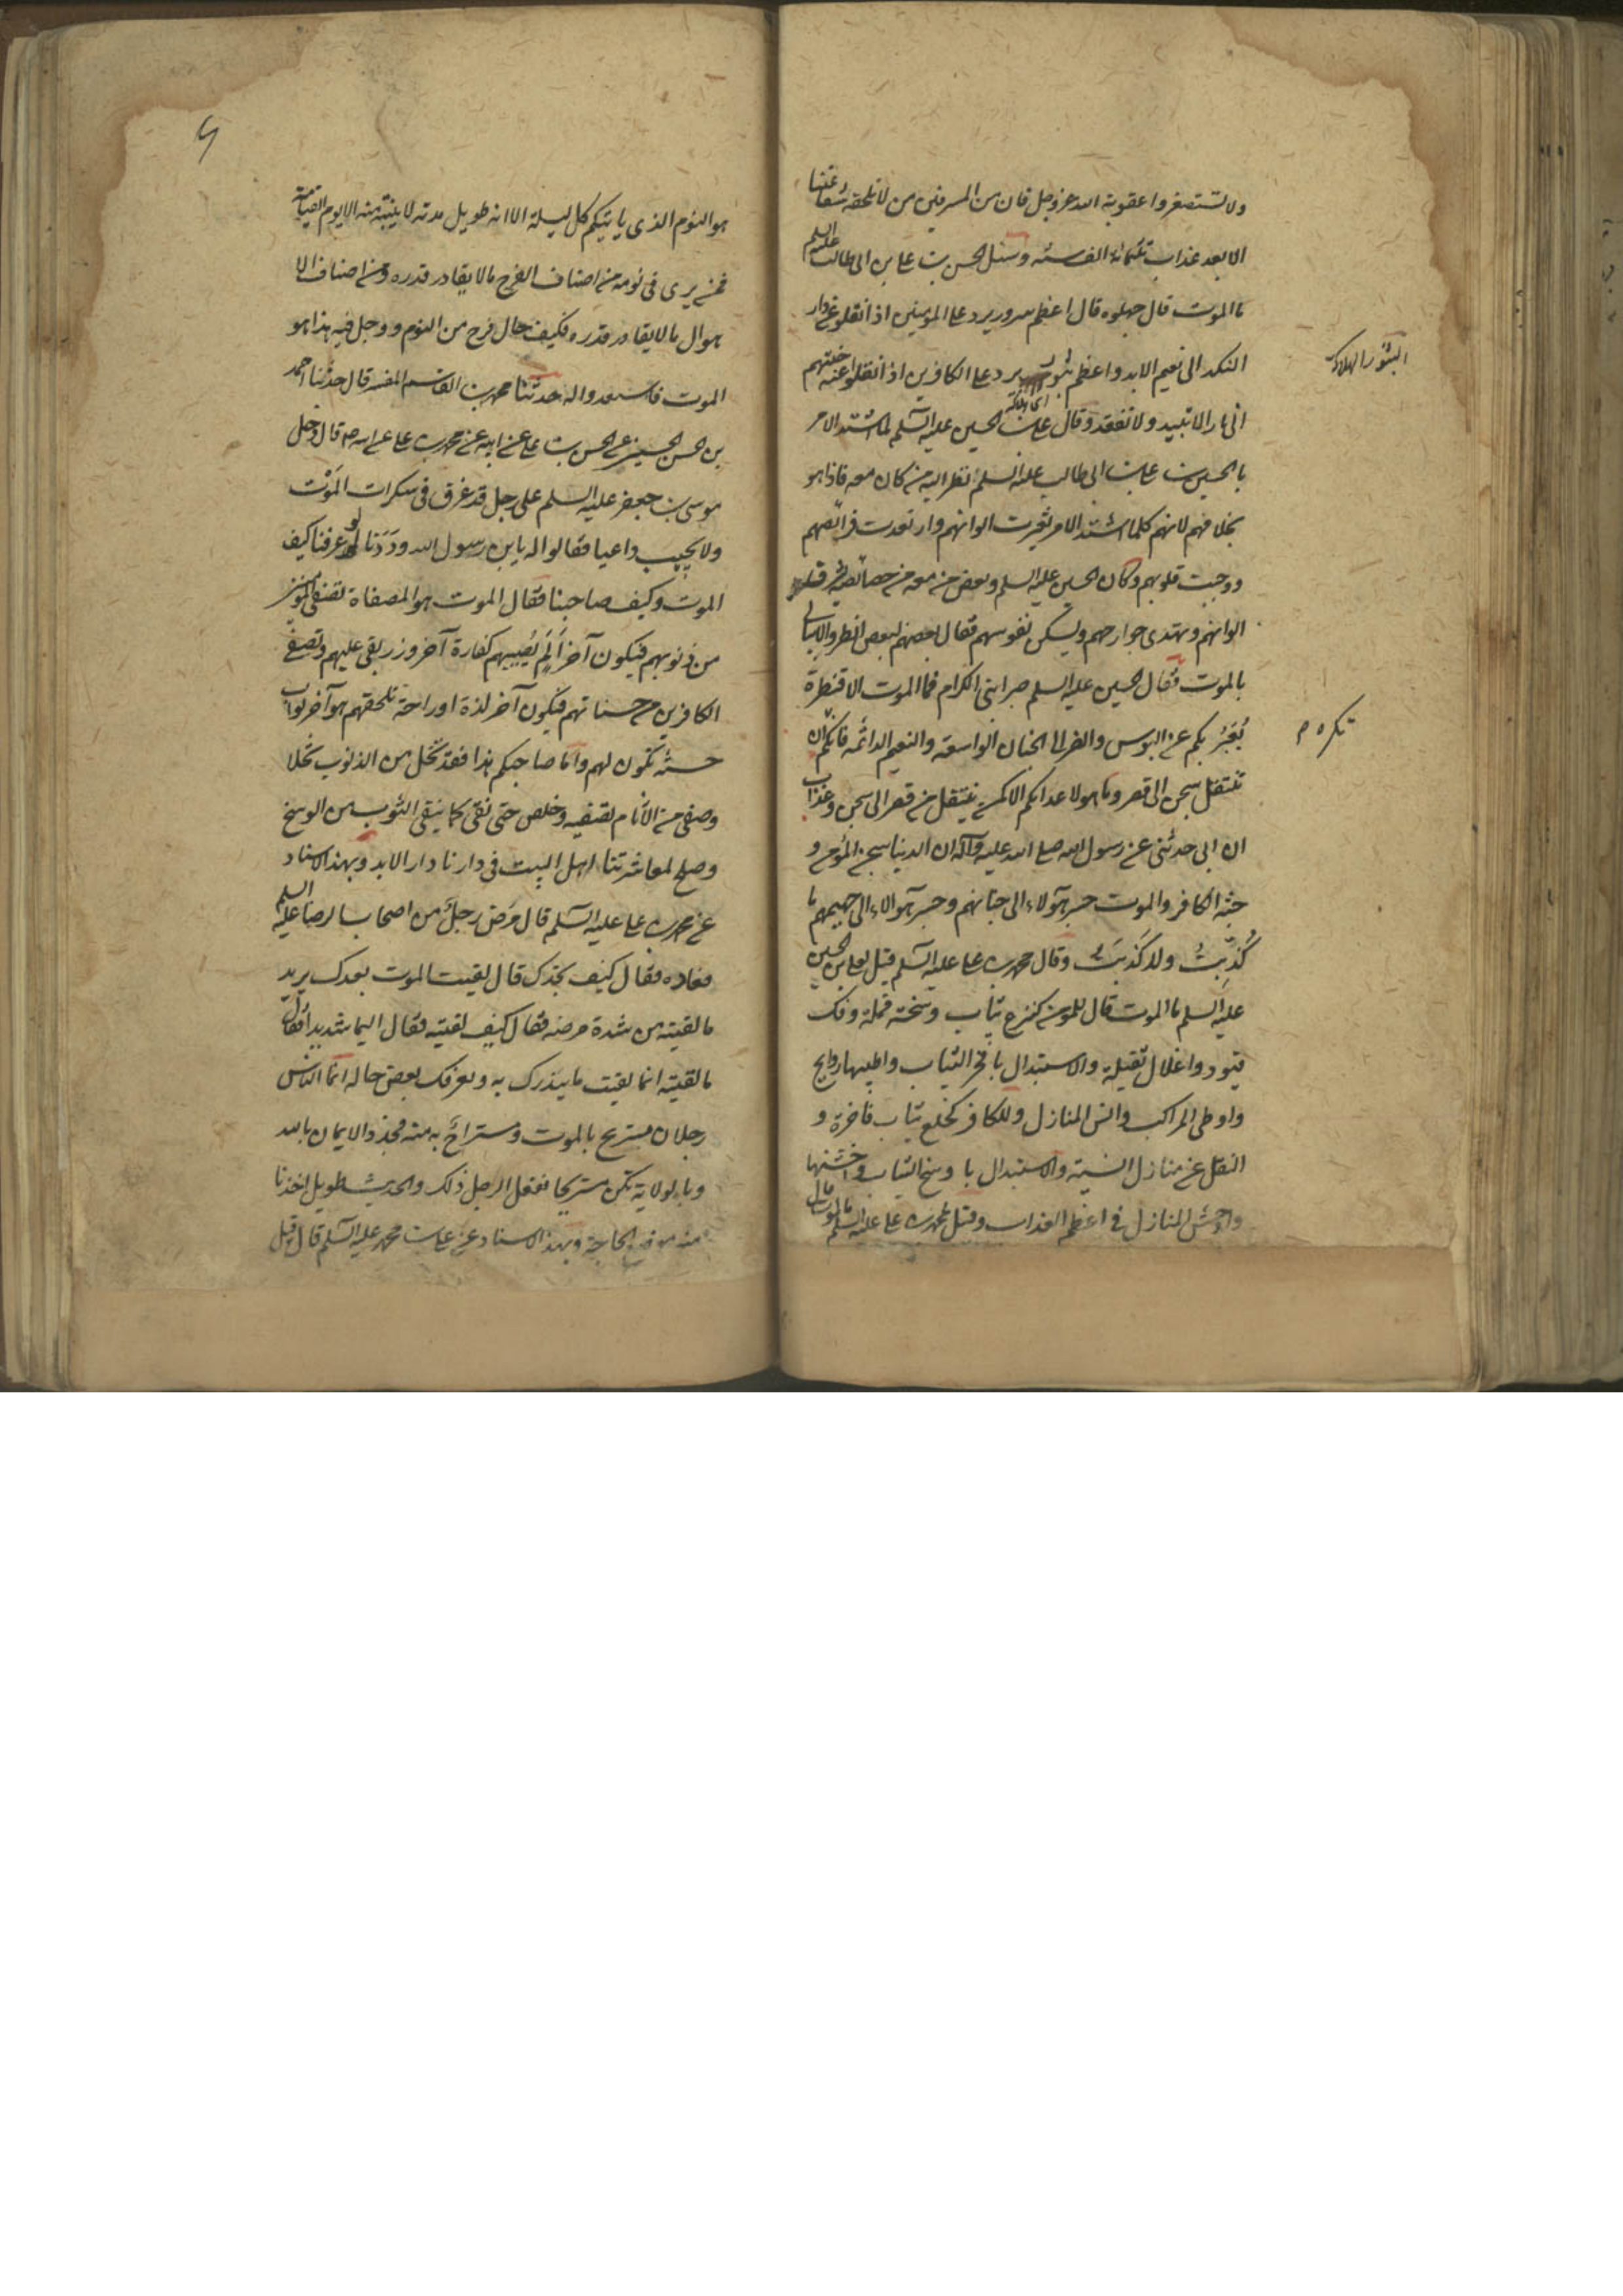 ولا تستصغروا عقوبة الله عز وجل فان من المسرفين من لا تلحقه شفاعتنا
الا بعد عذاب ثلثمائة الف سنه وسئل الحسن بن علی بن ابی طالب علیهم السلم
ما الموت قال جهلوه قال اعظم سرور يرد علی المومنين اذ انقلوا عن دار
النكد الی نعيم الابد واعظم ثبور يرد علی الكافرين اذ انقلوا عن جنتهم
ای هلاكة
الی نار لا تبيد ولا تنفد وقال علی بن الحسين عليه السلم لما اشتد الامر
بالحسين بن علی بن ابی طالب عليه السلم نظر اليه من كان معه فاذا هو
بخلافهم لانهم كلما اشتد الامر تغيرت الوانهم وارتعدت فرائصهم
ووجبت قلوبهم وكان الحسين عليه السلم وبعض من معه من خصائصه تشرق
الوانهم وتهدی جوارحهم وتسكن نفوسهم فقال بعضهم لبعض انظروا لا يبالی
بالموت فقال الحسين عليه السلم صبرا بنی الكرام فما الموت الا قنطرة
تعبر بكم عن البوس والضر الی الجنان الواسعة والنعيم الدائمه فايكم
تنتقل سجن الی قصر وما هو لاعدائكم الا كمن ينتقل من قصر الی سجن وعذاب
ان ابی حدثنی عن رسول الله صلی الله عليه وآله ان الدنيا سجن المؤمن و
جنة الكافر والموت جسر هٓولاء الی جنانهم وجسر هٓوالاء الی جحيمهم ما
كُذِبتُ ولا كَذَبتُ وقال محمد بن علی عليه السلم قيل لعلی بن الحسين
عليه السلم ما الموت قال للمومن كنزع ثياب وسخة قملة وفك
قيود واغلال ثقيلة والاستبدال بافخر الثياب واطيبها روايح
واوطی المراكب وانس المنازل وللكافر كخلع ثياب فاخرة و
النقل عن منازل انيسة والاستبدال باوسخ الثياب واخشنها
واوحش المنازل فی اعظم العذاب وقيل لمحمد بن علی عليه السلم ما الموت قال
البثور الهلاك
تكره م
هو النوم الذی ياتيكم كل ليلة الا انه طويل مدته لا ينتبه منه الا يوم القيامة
فمن يری فی نومه من اصناف الفرح ما لا يقادر قدره ومن اصناف الا
هوال ما لا يقادر قدره فكيف حال فرح من النوم ووجل فيه هذا هو
الموت فاستعدوا له حدثنا محمد بن القاسم المفسر قال حدثنا احمد
بن الحسن الحسينی عن الحسن بن علی عن ابيه عن محمد بن علی عليه السلم قال دخل
موسی بن جعفر عليه السلم علی رجل قد غرق فی سكرات الموت
ولا يجيب داعيا فقالوا له يابن رسول الله وددنا لو عرفنا كيف
الموت وكيف صاحبنا فقال الموت هو المصفاة تصفی المومنين
من ذنوبهم فيكون آخر الم يصيبهم كفارة آخر وزر بقی عليهم وتصفی
الكافرين من حسناتهم فيكون آخر لذة او راحة تلحقهم هو آخر ثواب
حسنة تكون لهم واما صاحبكم هذا فقد نخل من الذنوب نخلا
وصفی من الاثام تصفية وخلص حتی نقی كما ينقی الثوب من الوسخ
وصلح لمعاشرتنا اهل البيت فی دارنا دار الابد وبهذا الاسناد
عن محمد بن علی عليه السلم قال مرض رجل من اصحاب الرضا عليه السلم
فعاده فقال كيف تجدك قال لقيت الموت بعدك يريد
ما لقيته من شدة مرضه فقال كيف لقيته فقال اليما شديدا فقال
ما لقيته انما لقيت ما ينذرك به ويعرفك بعض حاله انما الناس
رجلان مستريح بالموت ومستراح به منه فجدد الايمان بالله
وبالولاية تكن مستريحا ففعل الرجل ذلك والحديث طويل اخذنا
منه موضع الحاجة وبهذا الاسناد عن علی بن محمد عليه السلم قال قيل